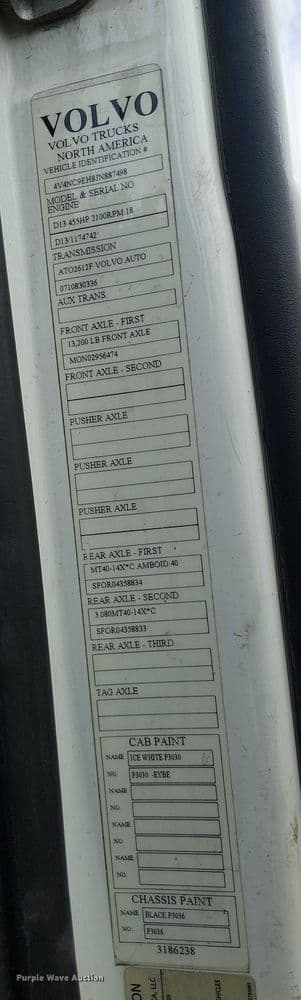 VOLVO
VOLVO TRUCKS
NORTH AMERICA
VEHICLE IDENTIFICATION #
4V4NC9EH8JN887498
MODEL & SERIAL NO
ENGINE
D13 455HP 2100RPM 18
D13/1174742
TRANSMISSION
ATO2612F VOLVO AUTO
0710830336
AUX TRANS.
FRONT AXLE - FIRST
13,200 LB FRONT AXLE
MON02956474
FRONT AXLE - SECOND
PUSHER AXLE
PUSHER AXLE
PUSHER AXLE
REAR AXLE - FIRST
MT40-14X*C AMBOID 40
SFOR04358834
REAR AXLE - SECOND
3.080MT40-14X*C
SFOR04358833
REAR AXLE - THIRD
TAG AXLE
CAB PAINT
NAME ICE WHITE P3030
NO. P3030 -EYBE
NAME
NO.
NAME
NO.
NAME
NO.
CHASSIS PAINT
NAME BLACK P3036
NO. P3036
3186238
ION
CA, LLC
Purple Wave Auction